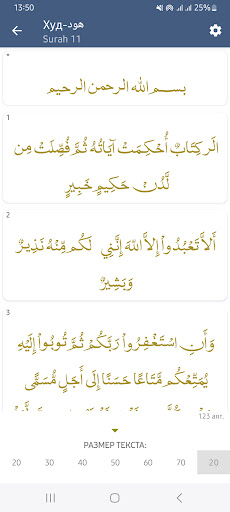 13:50
25%
Худ-هود
Surah 11
*
بسم الله الرحمن الرحيم
1
الَر كِتَابٌ أُحْكِمَتْ آيَاتُهُ ثُمَّ فُصِّلَتْ مِن
لَّدُنْ حَكِيمٍ خَبِيرٍ
2
أَلاَّ تَعْبُدُواْ إِلاَّ اللّهَ إِنَّنِي لَكُم مِّنْهُ نَذِيرٌ
وَبَشِيرٌ
3
وَأَنِ اسْتَغْفِرُواْ رَبَّكُمْ ثُمَّ تُوبُواْ إِلَيْهِ
يُمَتِّعْكُم مَّتَاعًا حَسَنًا إِلَى أَجَلٍ مُّسَمًّى
123 аят.
РАЗМЕР ТЕКСТА:
20 30 50 60 70 20